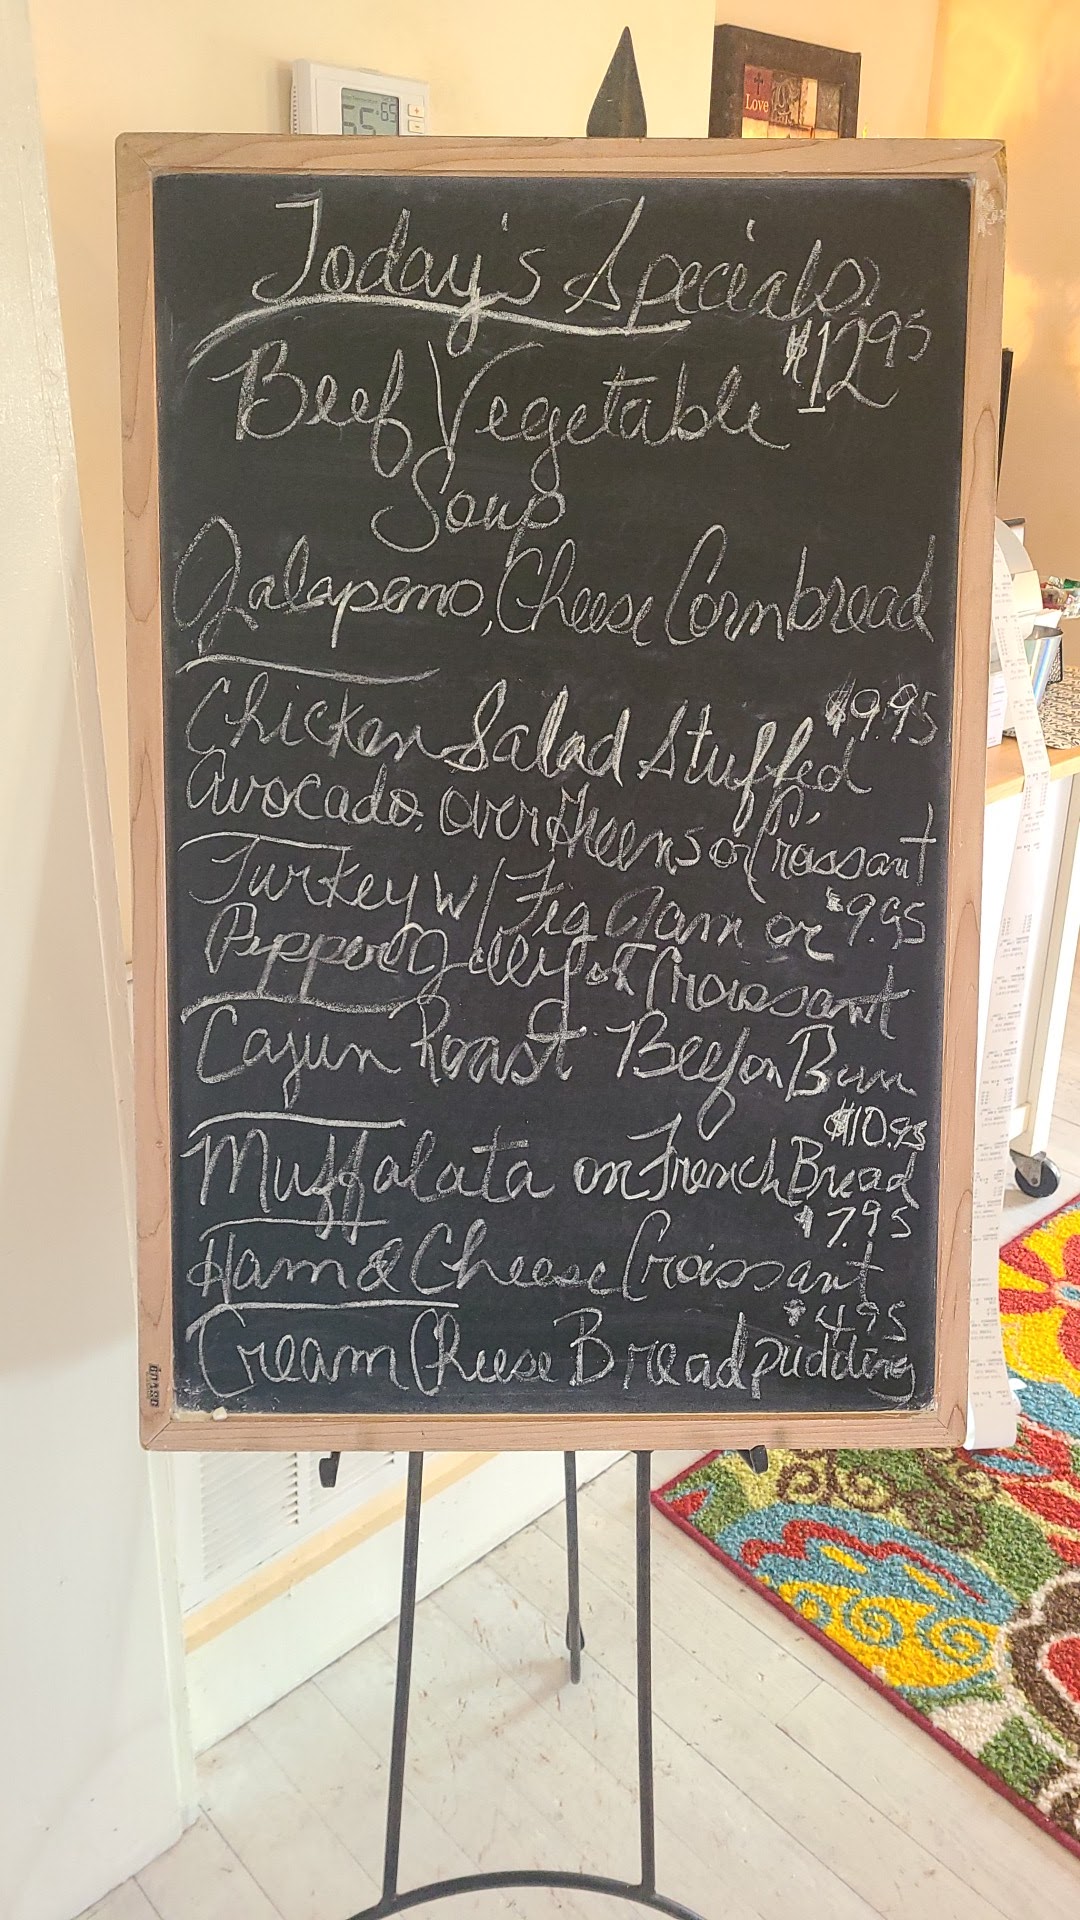 65
65
Love
Today's Specials
$12.95
Beef Vegetable
Soup
Jalapeno, Cheese Cornbread
$9.95
Chicken Salad Stuffed
Avocado. Over Greens or Croissant
Turkey w/ Fig Jam or $9.95
Pepper Jelly on Croissant
Cajun Roast Beef on Bun
$10.95
Muffalata on French Bread
$7.95
Ham & Cheese Croissant
$4.95
Cream Cheese Bread pudding